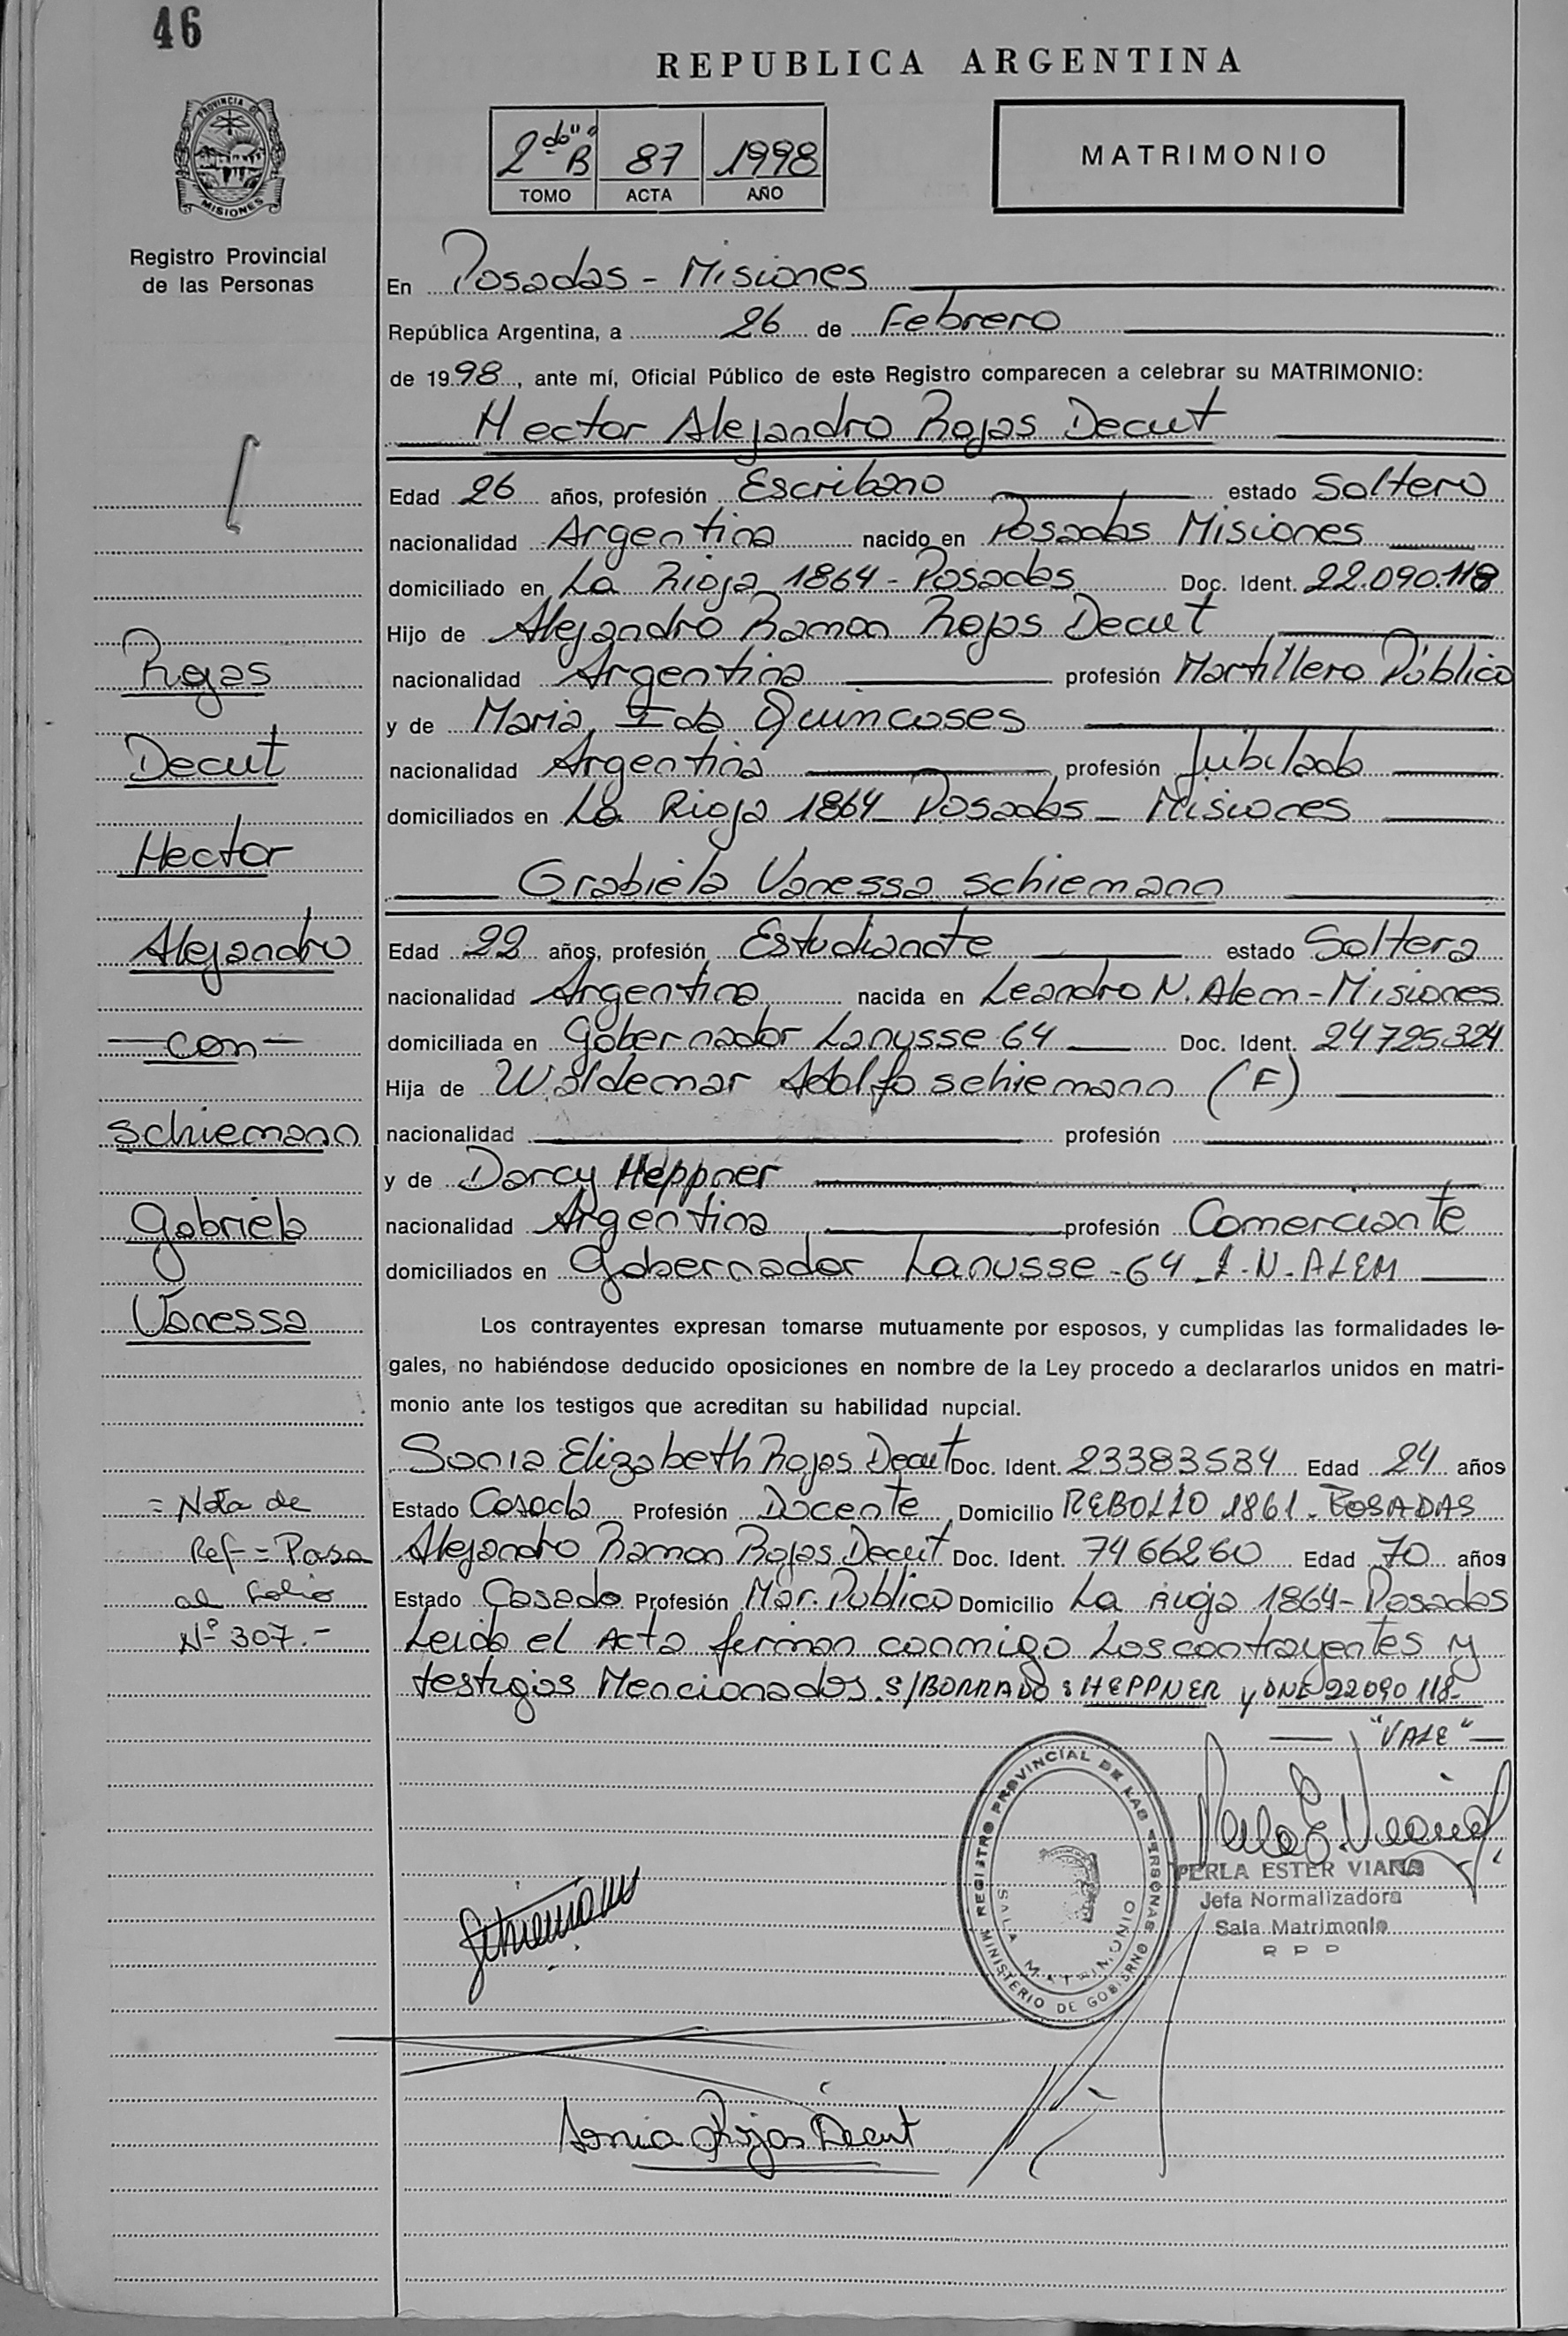 46
REPUBLICA ARGENTINA
PROVINCIA DE
MISIONES
2do "B" 87 1998
TOMO ACTA AÑO
MATRIMONIO
Registro Provincial
de las Personas
En Posadas - Misiones
República Argentina, a 26 de Febrero
de 1998, ante mí, Oficial Público de este Registro comparecen a celebrar su MATRIMONIO:
Hector Alejandro Rojas Decut
Edad 26 años, profesión Escribano estado Soltero
nacionalidad Argentina nacido en Posadas Misiones
domiciliado en La Rioja 1864 - Posadas Doc. Ident. 22.090.118
Hijo de Alejandro Ramon Rojas Decut
nacionalidad Argentina profesión Martillero Público
y de Maria Ida Quincoses
nacionalidad Argentina profesión Jubilada
domiciliados en La Rioja 1864 - Posadas - Misiones
Grabiela Vanessa schiemann
Edad 22 años, profesión Estudiante estado Soltera
nacionalidad Argentina nacida en Leandro N. Alem - Misiones
domiciliada en Gobernador Lanusse 64 Doc. Ident. 24725324
Hija de Waldemar Adolfo schiemann (F)
nacionalidad profesión
y de Darcy Heppner
nacionalidad Argentina profesión Comerciante
domiciliados en Gobernador Lanusse - 64 - L - N - ALEM
Rojas
Decut
Hector
Alejandro
- con -
schiemann
Gabriela
Vanessa
Los contrayentes expresan tomarse mutuamente por esposos, y cumplidas las formalidades le-
gales, no habiéndose deducido oposiciones en nombre de la Ley procedo a declararlos unidos en matri-
monio ante los testigos que acreditan su habilidad nupcial.
Sonia Elizabeth Rojas Decut Doc. Ident. 23383534 Edad 24 años
Estado Casada Profesión Docente Domicilio REBOLLO 1861 - POSADAS
Alejandro Ramon Rojas Decut Doc. Ident. 7466260 Edad 70 años
Estado Casado Profesión Mar. Publico Domicilio La Rioja 1864 - Posadas
Leida el Acta firman conmigo Los contrayentes y
testigos Mencionados. S/BORRADO: HEPPNER y DNI 22090118-
"VALE"
= Nota de
Ref = Pasa
al Folio
Nº 307.-
REGISTRO PROVINCIAL DE LAS PERSONAS
MINISTERIO DE GOBIERNO
SALA MATRIMONIO
PERLA ESTER VIANA
Jefa Normalizadora
Sala Matrimonio
R P P
Schiemann
Sonia Rojas Decut